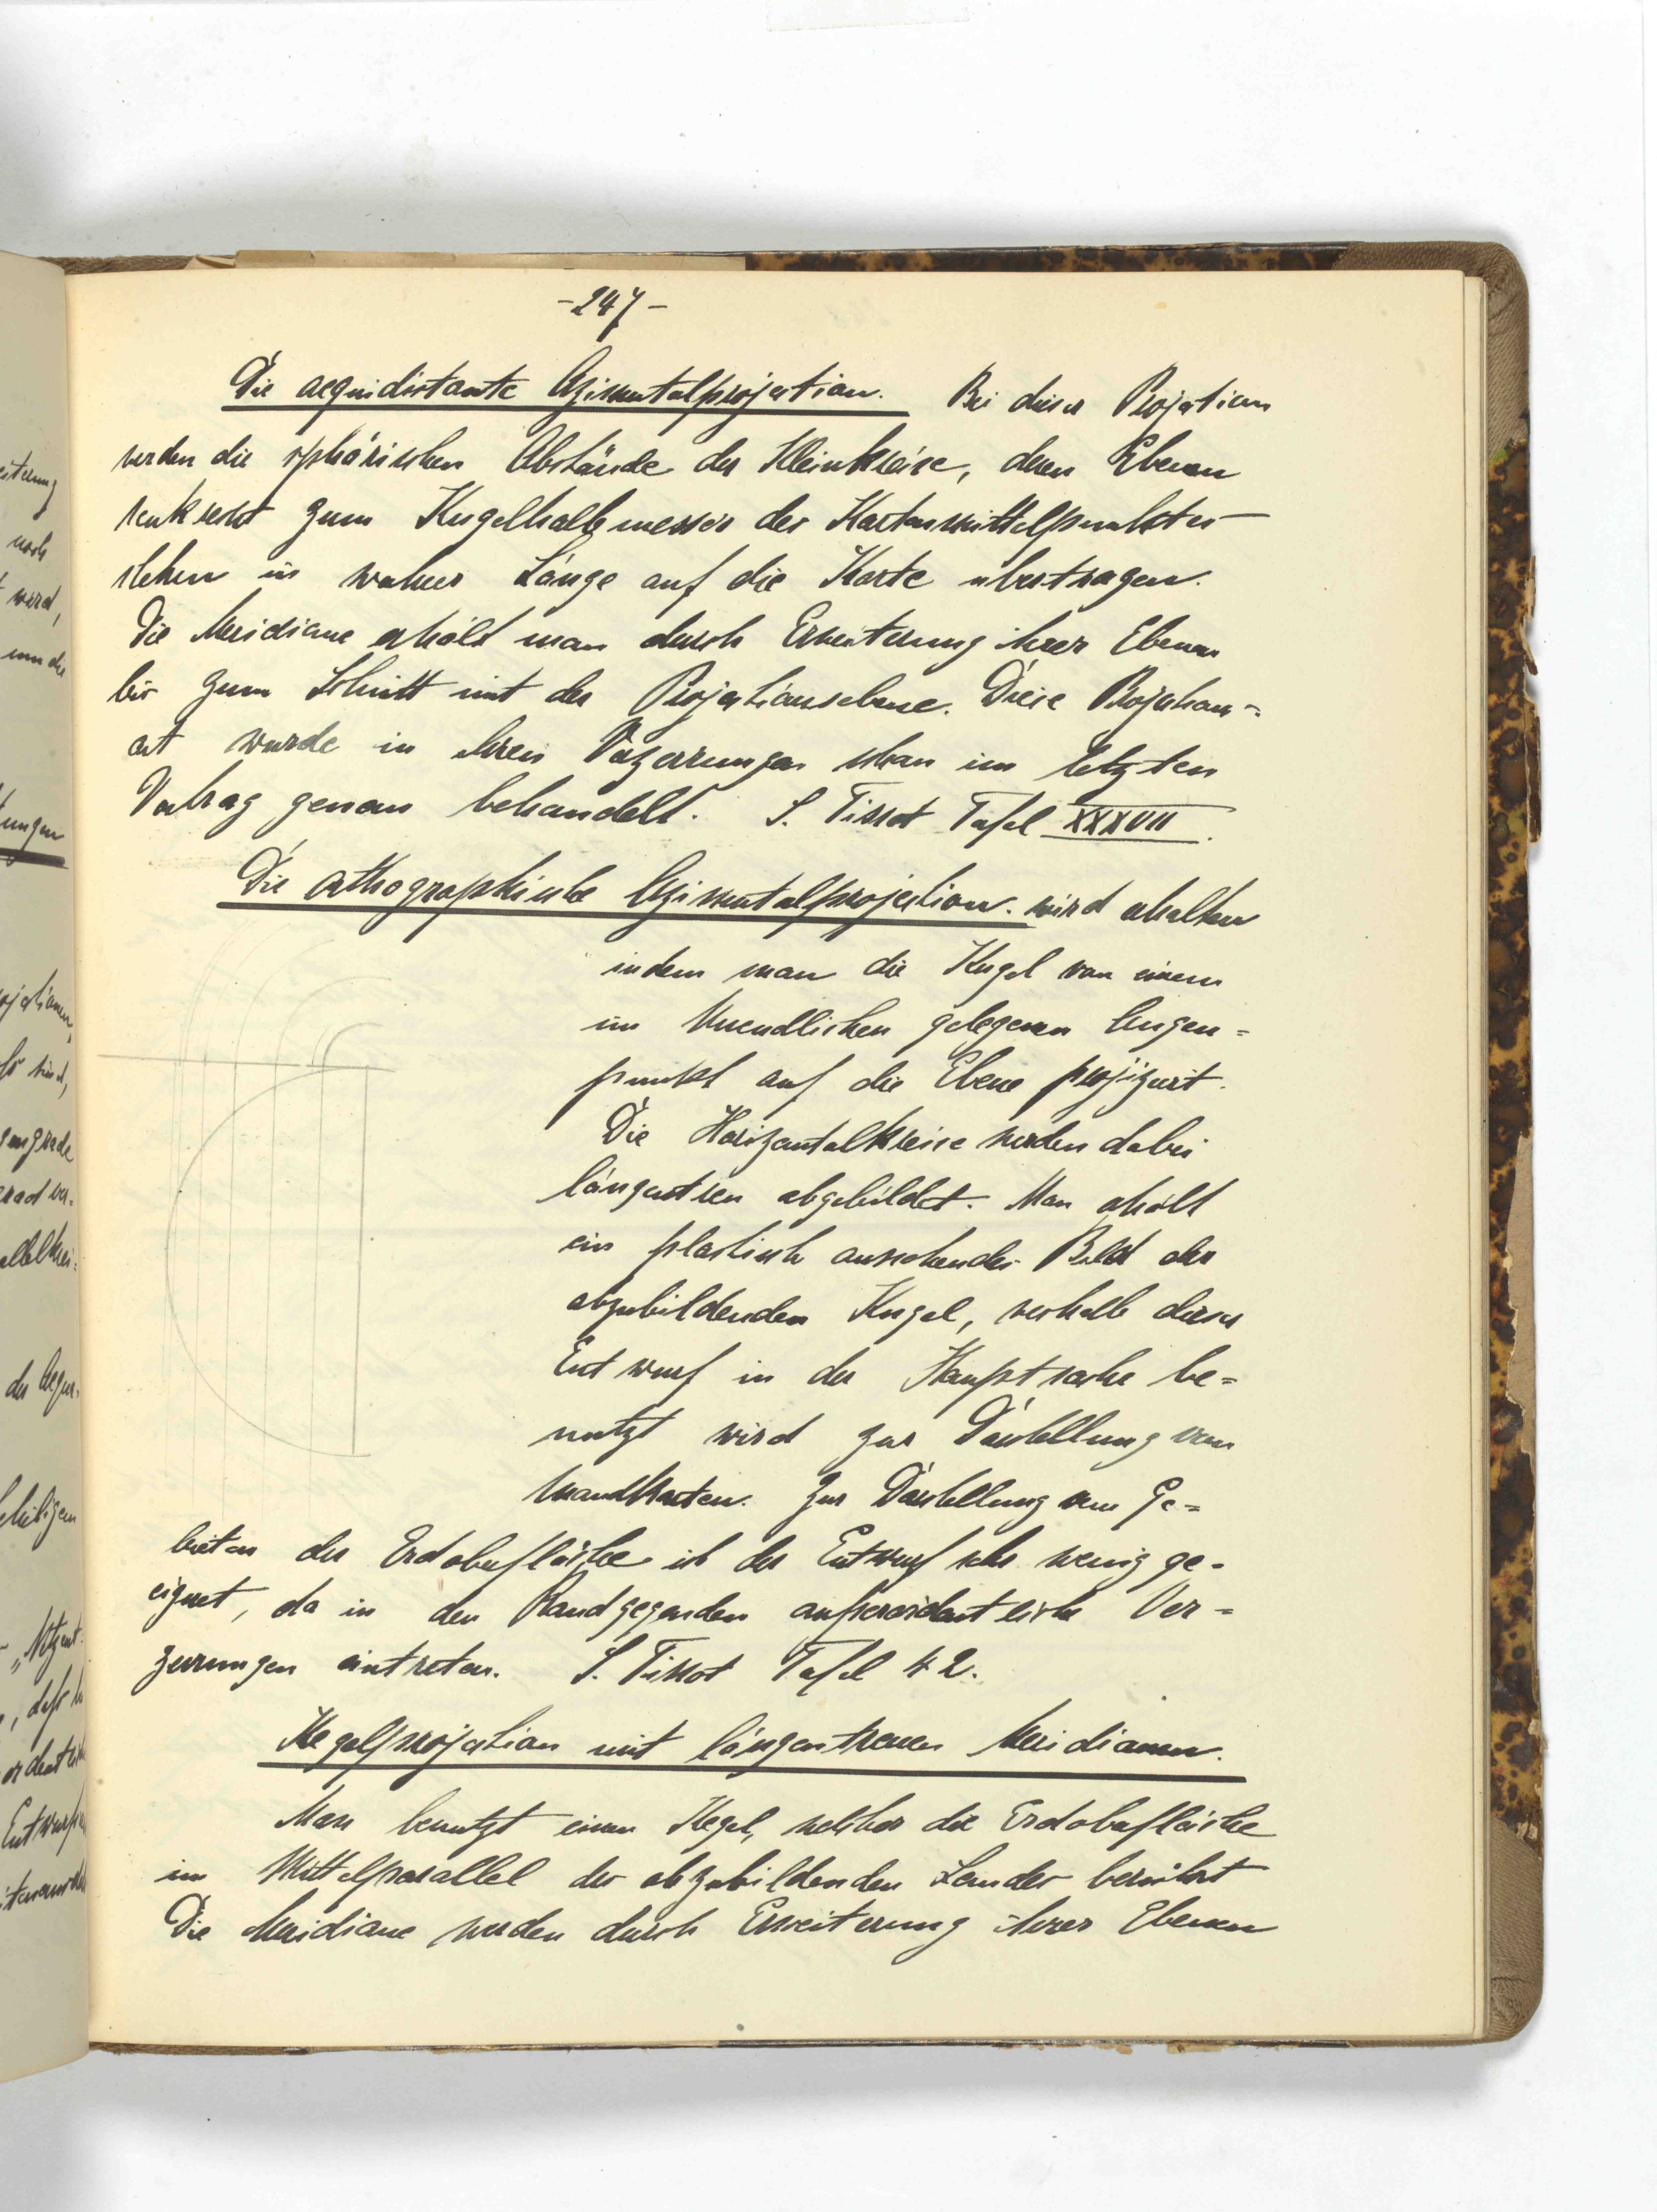 -247-
Die aequidistante Azimutalprojection. Bei dieser Projection
werden die sphärischen Abstände der Kleinkreise, deren Ebenen
senkrecht zum Kugelhalbmesser des Kartenmittelpunktes
stehen in wahrer Länge auf die Karte übertragen.
Die Meridiane erhält man durch Erweiterung ihrer Ebenen
bis zum Schnitt mit der Projectionsebene. Diese Projections-
art wurde in ihren Verzerrungen schon im letzten
Vortrag genau behandelt. S. Tissot Tafel XXXVII.
Die orthographische Azimutalprojection. wird erhalten
indem man die Kugel von einem
im Unendlichen gelegenen Augen=
punkt auf die Ebene projiziert.
Die Horizontalkreise werden dabei
längentreu abgebildet. Man erhält
ein plastisch aussehendes Bild der
abzubildenden Kugel, weshalb dieser
Entwurf in der Hauptsache be=
nutzt wird zur Darstellung von
Mondkarten. Zur Darstellung von Ge=
bieten der Erdoberfläche ist der Entwurf sehr wenig ge-
eignet, da in den Randgegenden außerordentliche Ver=
zerrungen eintreten. S. Tissot Tafel 42.
Kegelprojection mit längentreuen Meridianen.
Man benutzt einen Kegel, welcher die Erdoberfläche
im Mittelparallel des abzubildenden Landes berührt
Die Meridiane werden durch Erweiterung ihrer Ebenen